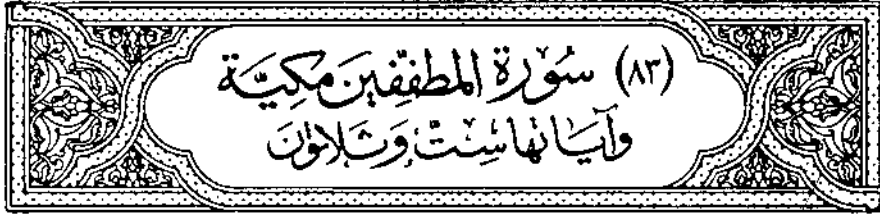 (٨٣) سُورَة المطفّفِين مَكِيَّة
وآيَاتها سِتٌّ وَثَلَاثُونَ